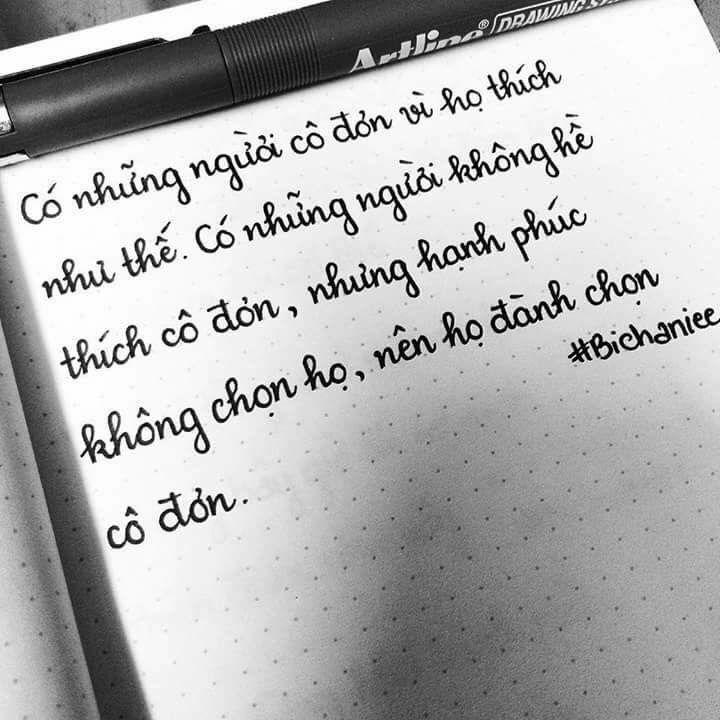 Artline® DRAWING S
Có những người cô đơn vì họ thích
như thế. Có những người không hề
thích cô đơn, nhưng hạnh phúc
không chọn họ, nên họ đành chọn
#Bichaniee
cô đơn.